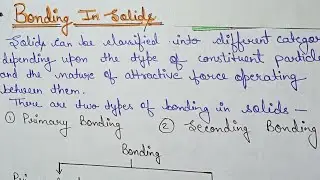 Bonding In Solids
Solids can be classified into different categor
depending upon the type of constituent particle
and the nature of attractive force operating
between them.
There are two types of bonding in solids —
① Primary Bonding ② Seconding Bonding
Bonding